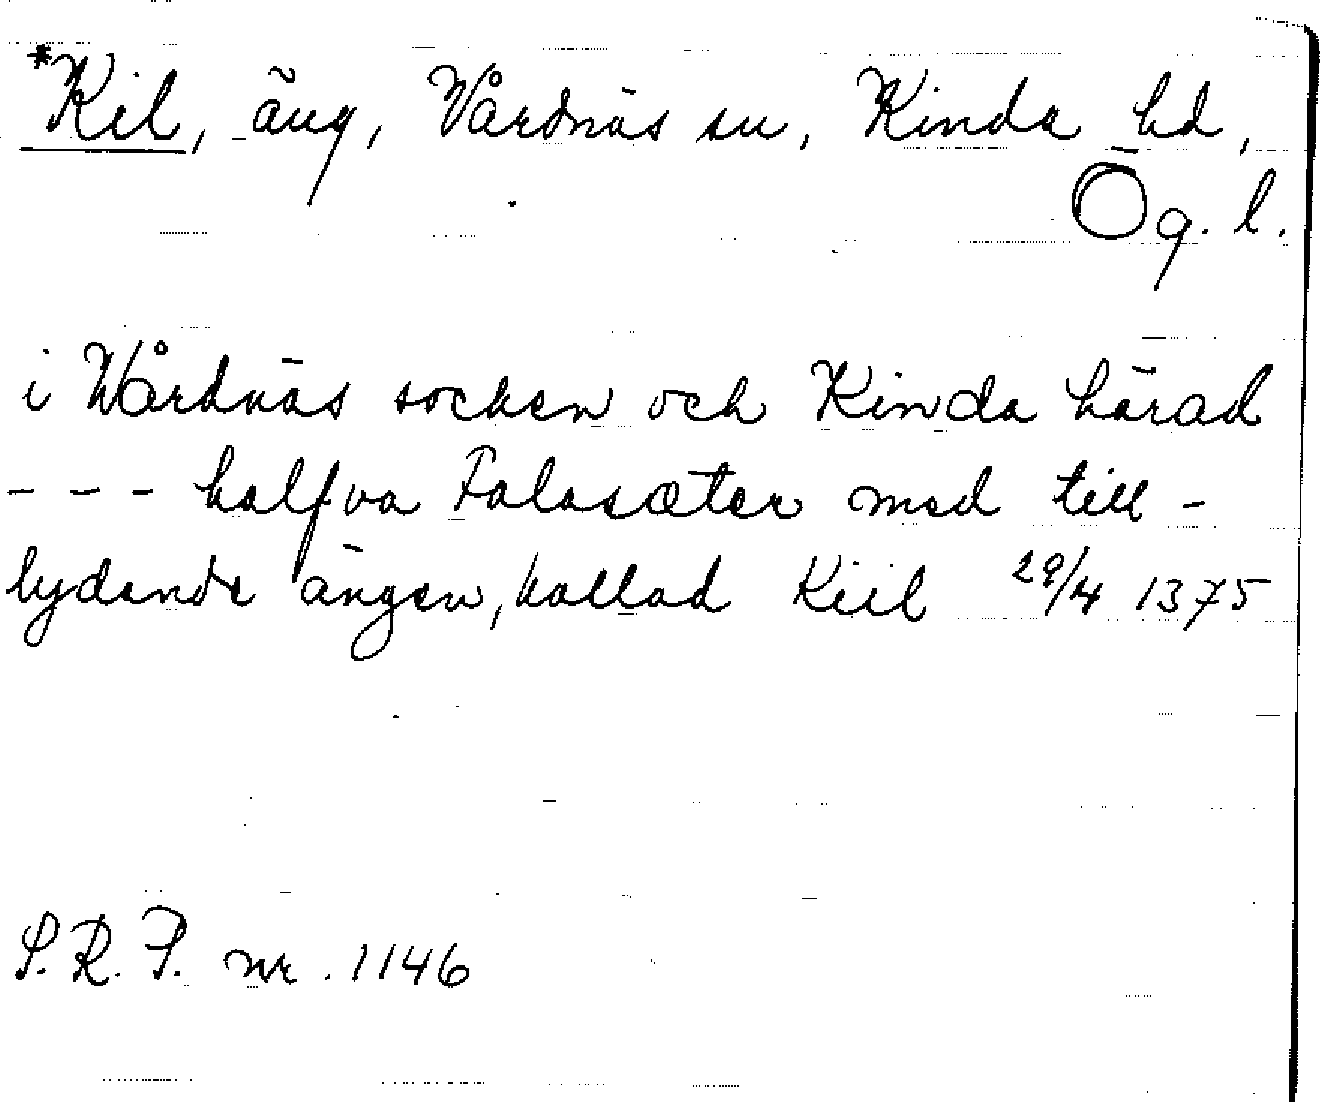 *Kil, äng, Vårdnäs sn, Kinda hd,
Ög. l.
i Wårdnäs socken och Kinda härad
--- halfva Falasæter med till-
lydande ängen, kallad Kiil 29/4 1375
S.R.P. nr. 1146